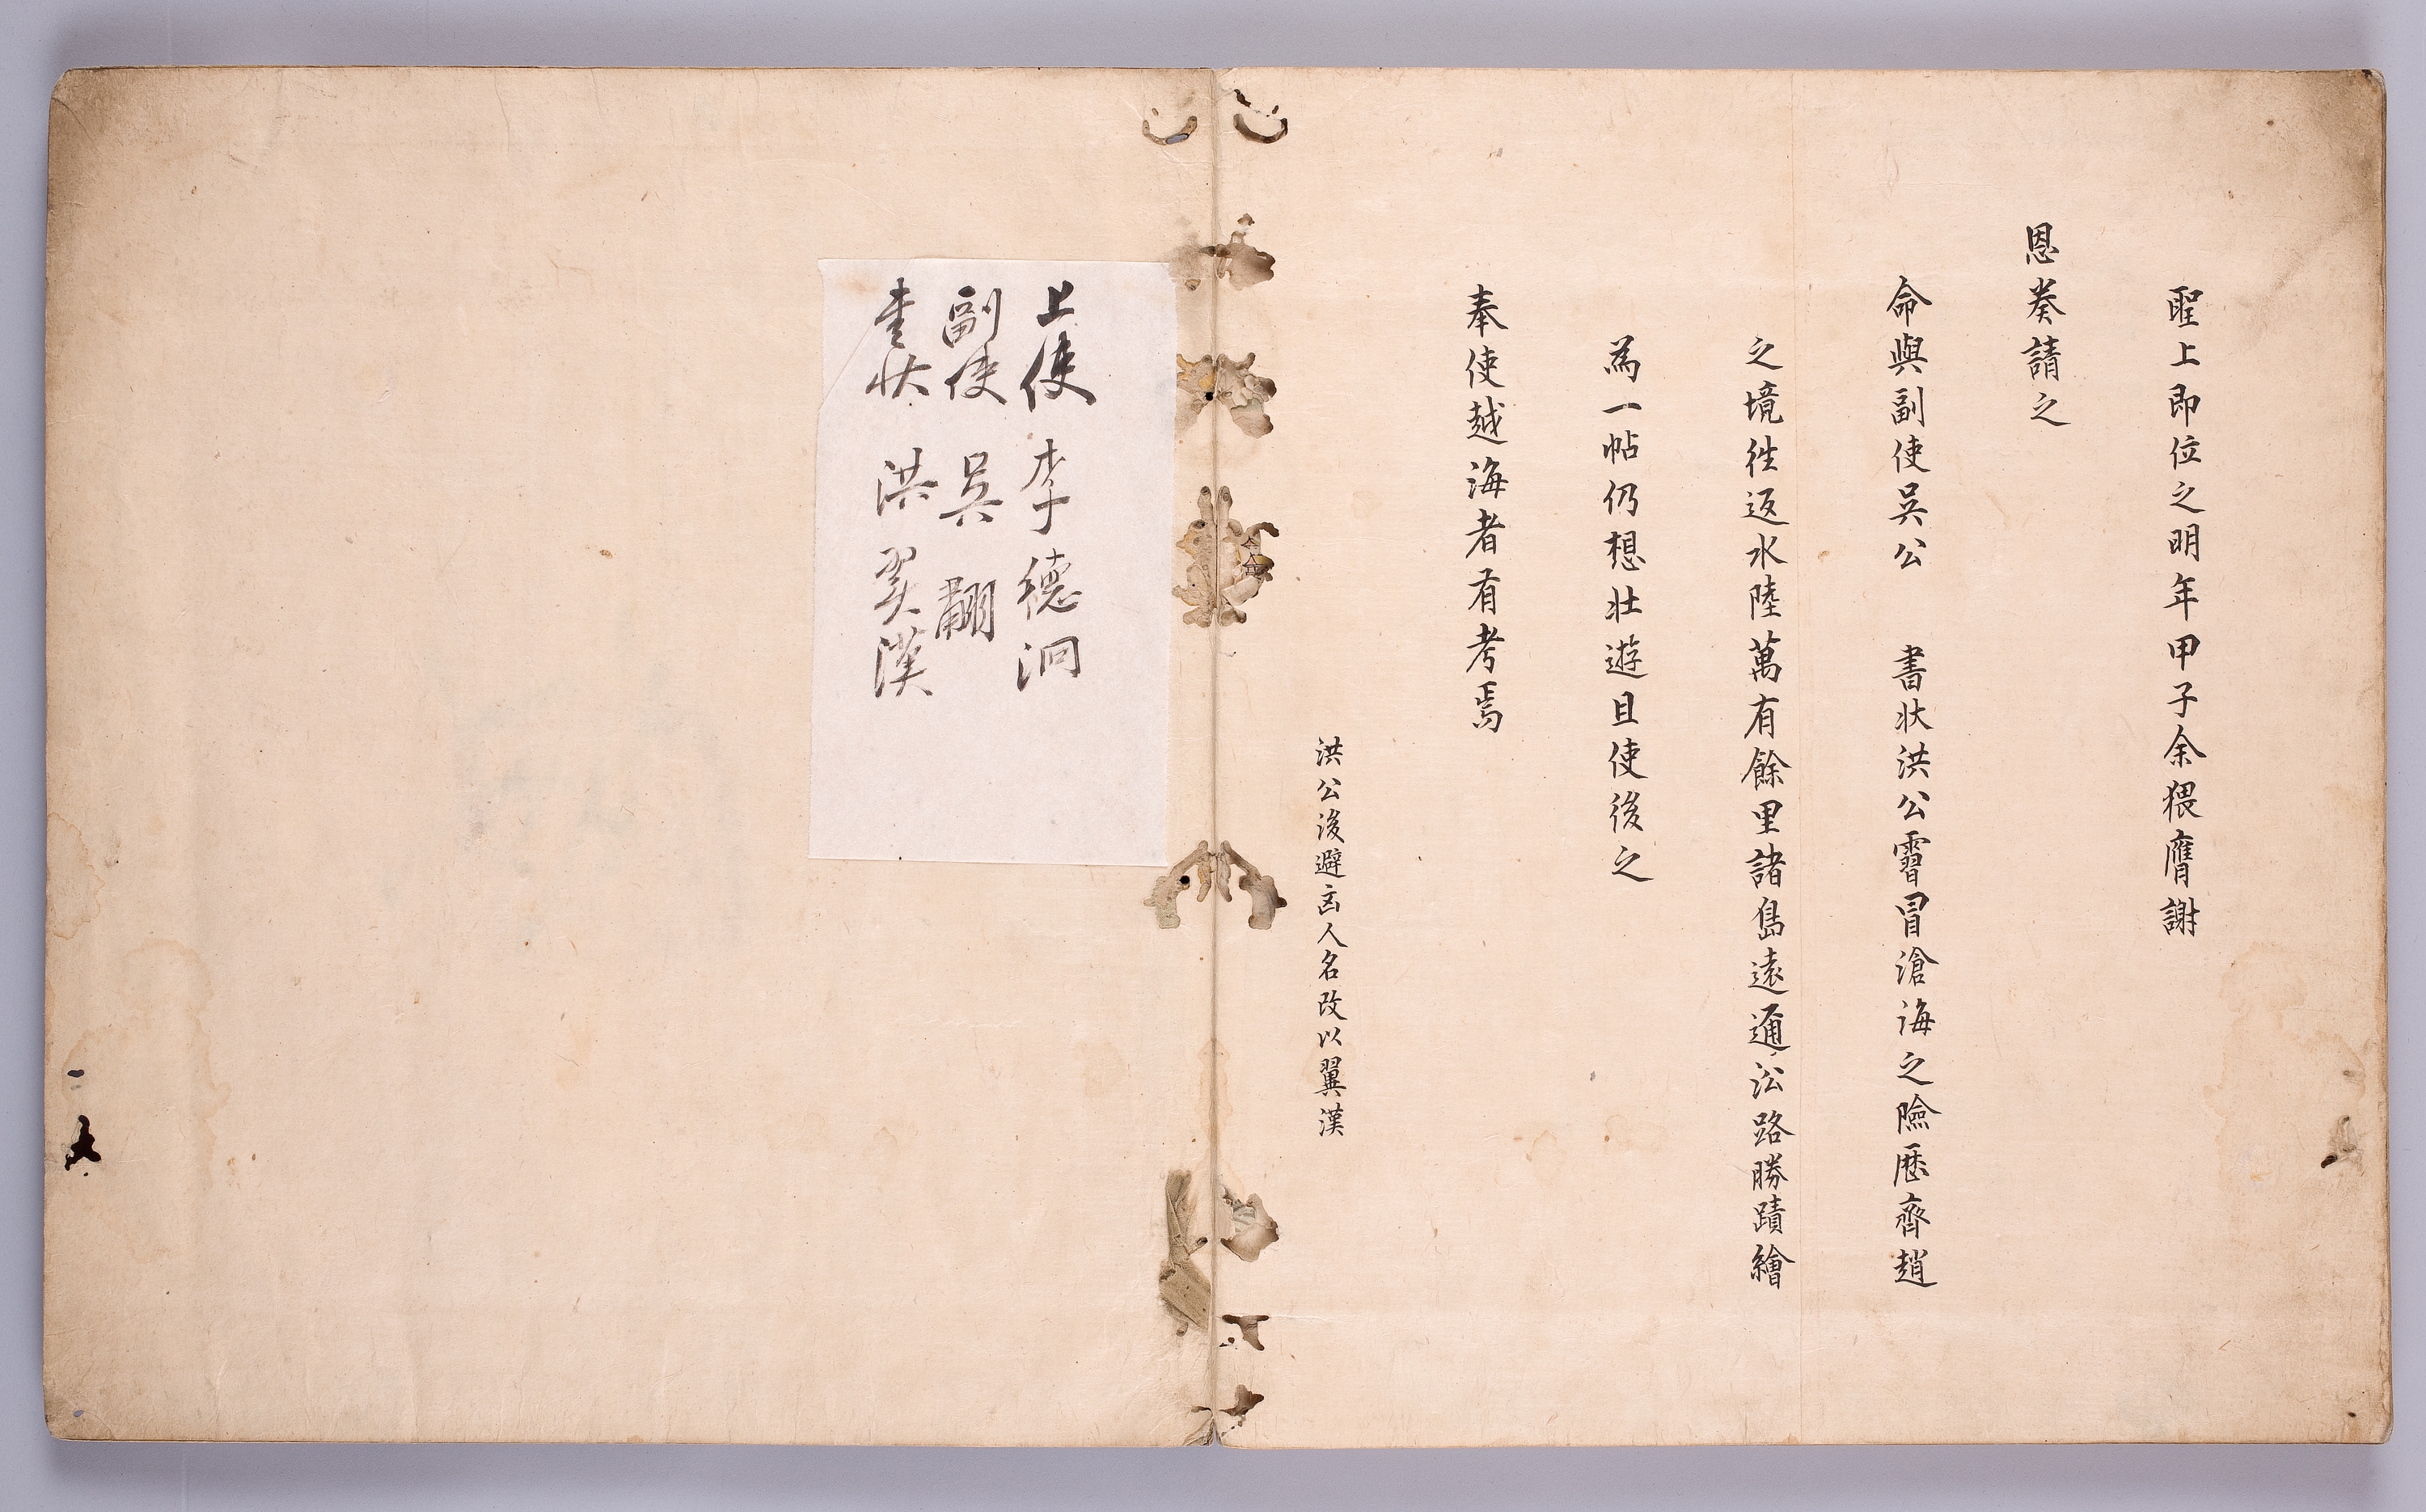 聖上即位之明年甲子余猥膺謝
恩奏請之
命與副使吳公 書狀洪公霫冒滄海之險歷齊趙
之境徃返水陸萬有餘里諸島遠邇沿路勝蹟繪
為一帖仍想壯遊且使後之
奉使越海者有考焉
洪公後避凶人名改以翼漢
上使 李德泂
副使 吳翿
書狀 洪翼漢